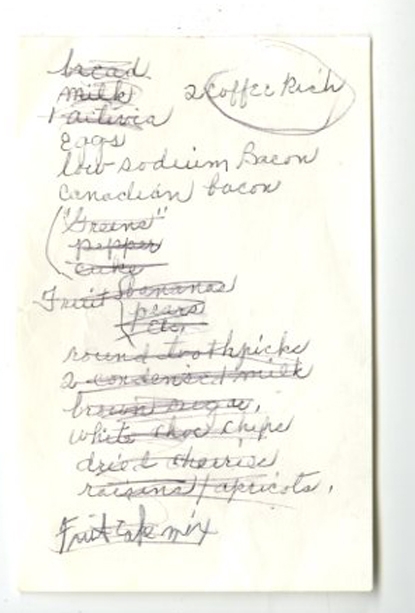 bread
milk
2 Coffee Rich
Eggs
low sodium Bacon
Canadian bacon
"Greens"
pepper
cuke
Fruit bananas
pears
etc.
round toothpicks
2 condensed milk
brown sugar,
white choc chips
dried cherries
raisins / apricots,
Fruitcake mix